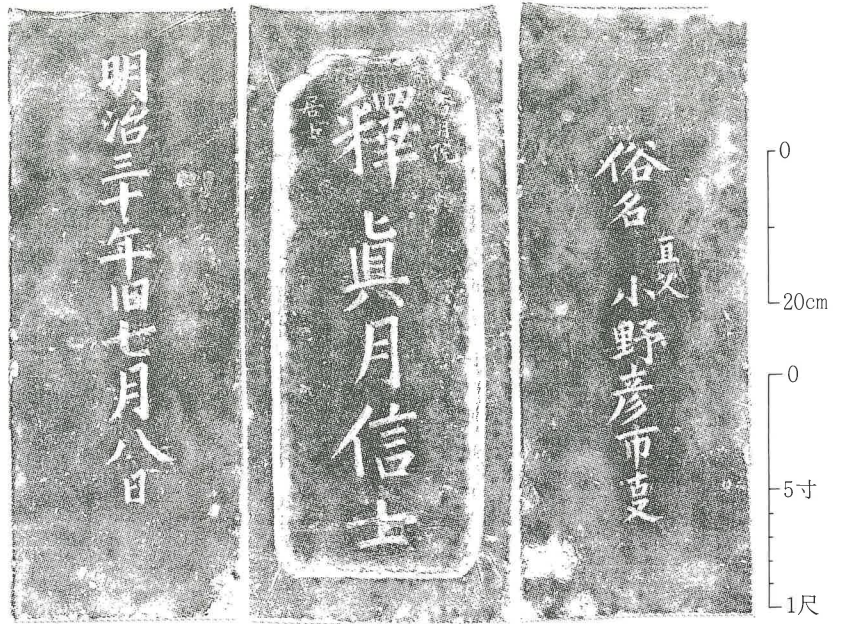 俗名 小野彦市叓
月院
釋眞月信士
居士
明治三十年旧七月八日
0
20cm
0
5寸
1尺